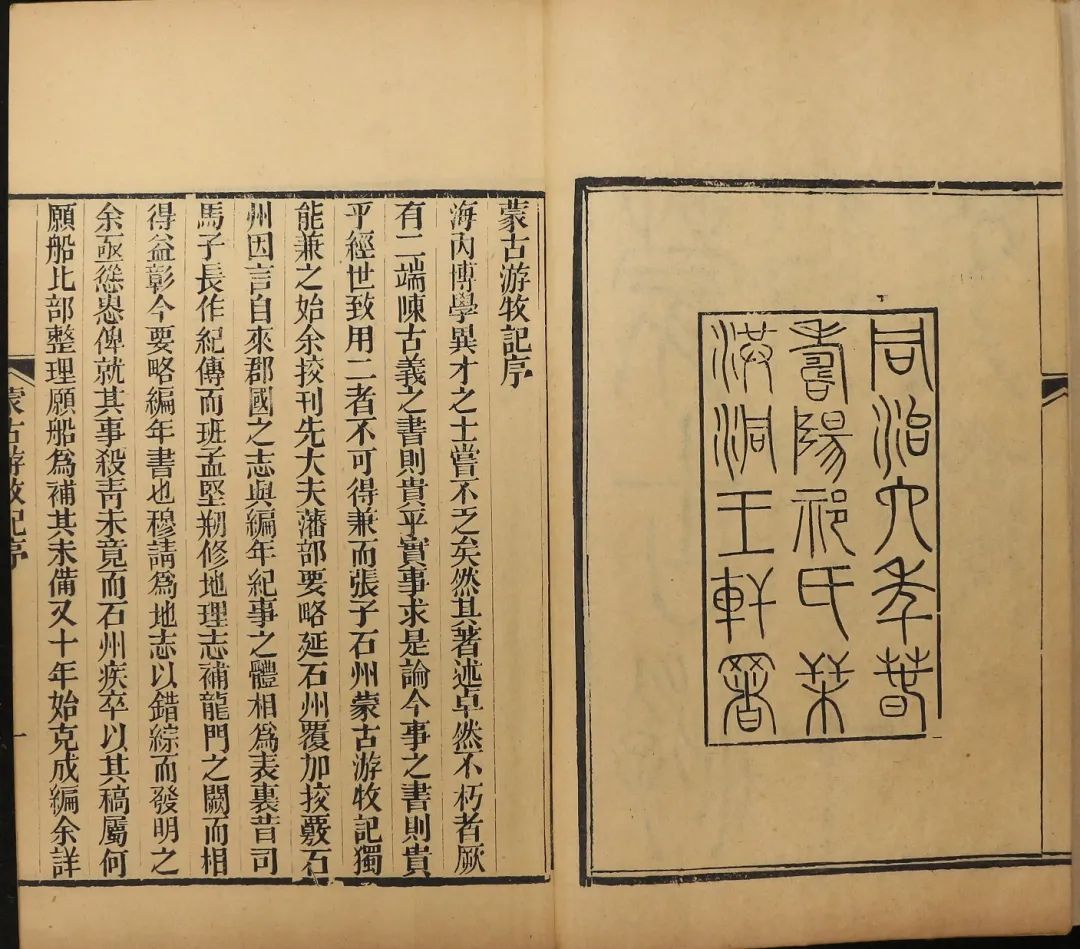 同治六年春
壽陽祁氏栞
洪洞王軒署
蒙古游牧記序
海內博學異才之士嘗不乏矣然其著述卓然不朽者厥
有二端陳古義之書則貴乎實事求是論今事之書則貴
乎經世致用二者不可得兼而張子石州蒙古游牧記獨
能兼之始余挍刊先大夫藩部要略延石州覆加挍覈石
州因言自來郡國之志與編年紀事之體相爲表裏昔司
馬子長作紀傳而班孟堅剏修地理志補龍門之闕而相
得益彰今要略編年書也穆請爲地志以錯綜而發明之
余亟慫恿俾就其事殺靑未竟而石州疾卒以其稿屬何
願船比部整理願船爲補其未備又十年始克成編余詳
蒙古游牧記序
一